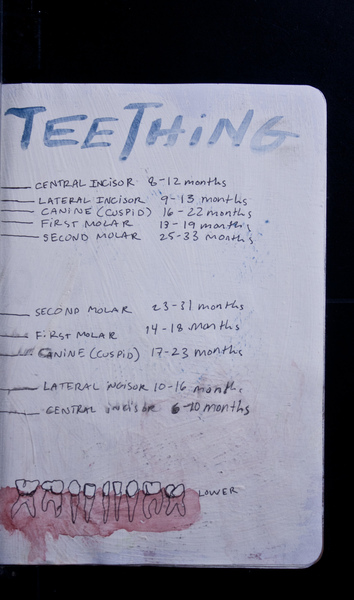 TEETHING
CENTRAL INCISOR 8-12 months
LATERAL INCISOR 9-13 months
CANINE (CUSPID) 16-22 months
FIRST MOLAR 13-19 months
SECOND MOLAR 25-33 months
SECOND MOLAR 23-31 months
FIRST MOLAR 14-18 months
CANINE (CUSPID) 17-23 months
LATERAL INCISOR 10-16 months
CENTRAL incisor 6-10 months
LOWER